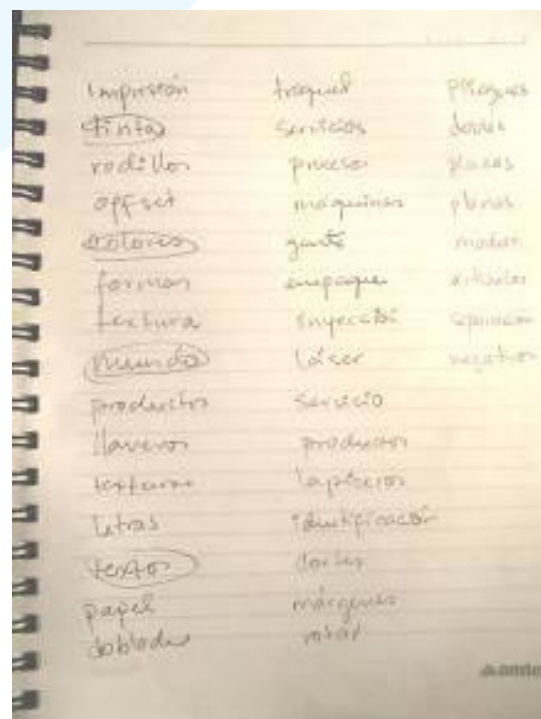 impresión
tintas
rodillos
offset
colores
formas
textura
mundo
productos
llaveros
texturas
letras
textos
papel
doblado
troquel
servicios
proceso
máquinas
gente
empaque
inyección
láser
servicio
productos
lapiceros
identificación
márgenes
rotar
pliegues
placas
planas
artículos
separación
negativos